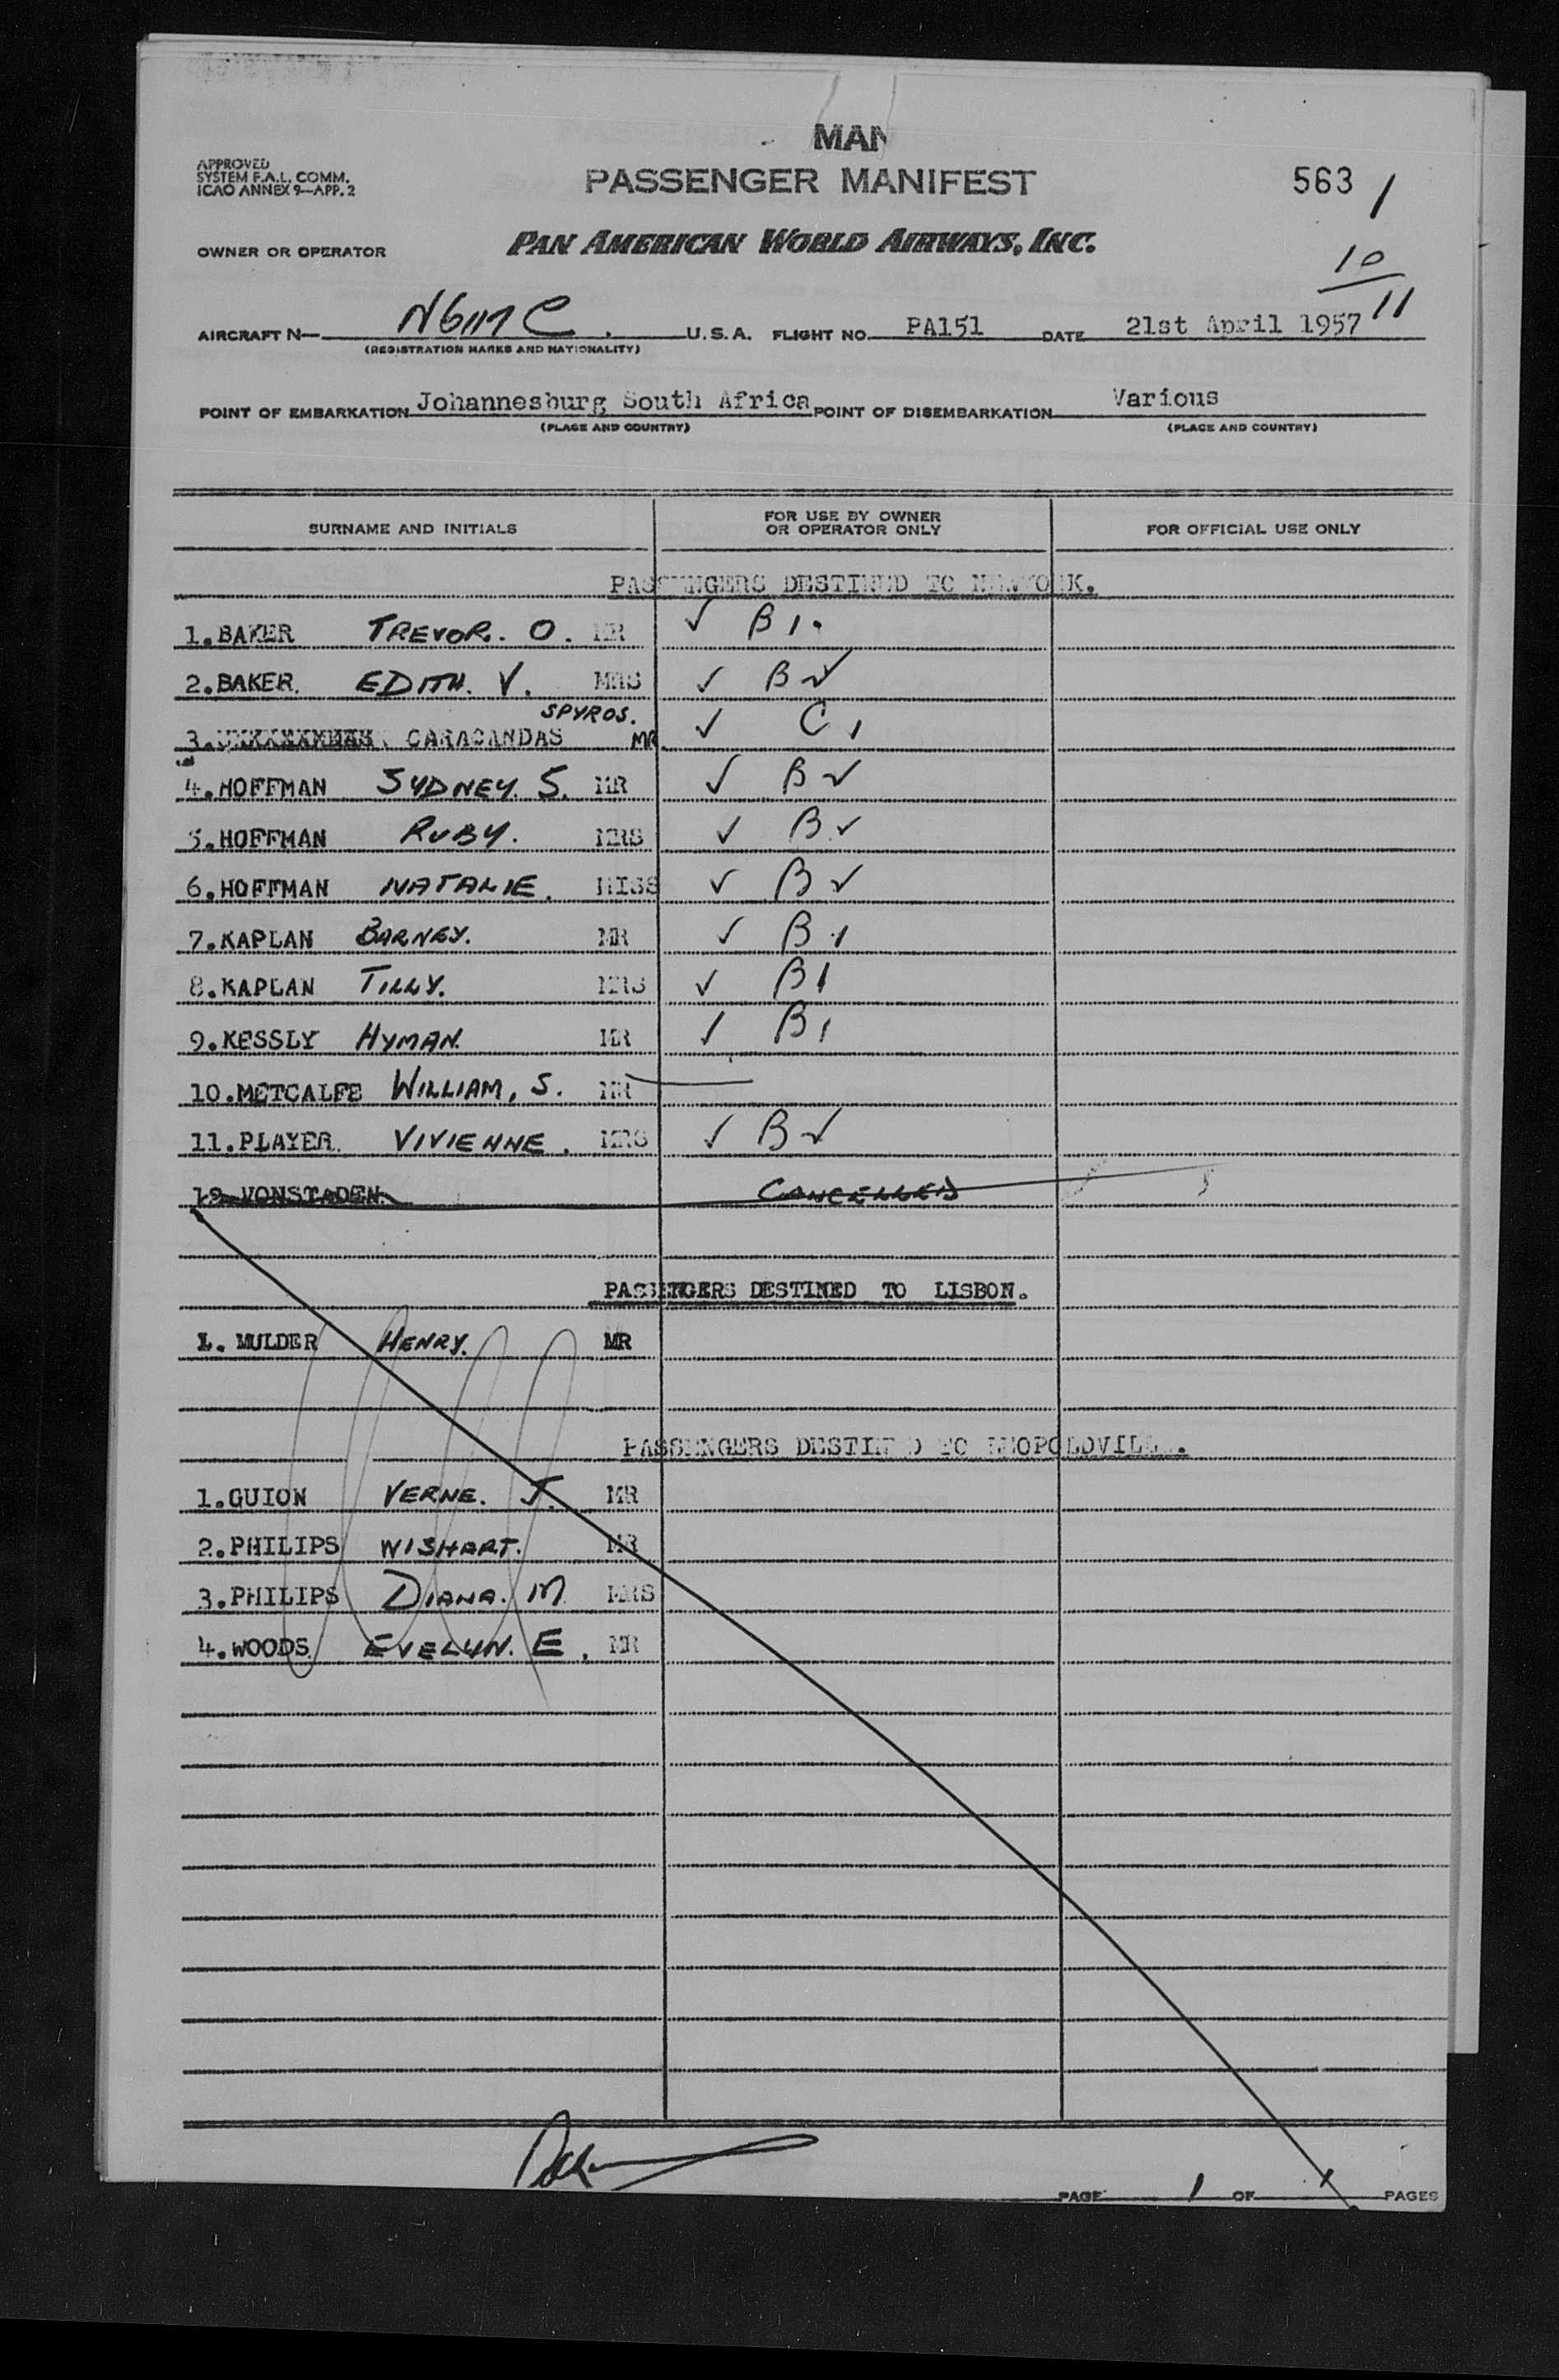 MAN
APPROVED
SYSTEM F.A.L. COMM.
ICAO ANNEX 9—APP. 2
PASSENGER MANIFEST
563 1
OWNER OR OPERATOR PAN AMERICAN WORLD AIRWAYS, INC.
10
11
AIRCRAFT N— U.S.A. FLIGHT NO. PA151 DATE 21st April 1957
(REGISTRATION MARKS AND NATIONALITY)
POINT OF EMBARKATION Johannesburg South Africa POINT OF DISEMBARKATION Various
(PLACE AND COUNTRY) (PLACE AND COUNTRY)
SURNAME AND INITIALS FOR USE BY OWNER OR OPERATOR ONLY FOR OFFICIAL USE ONLY
PASSENGERS DESTINED TO NEW YORK.
1. BAKER TREVOR. O. MR ✓ B1.
2. BAKER. EDITH. V. MRS ✓ B ✓
SPYROS.
3. CARACANDAS MR ✓ C1
4. HOFFMAN SYDNEY. S. MR ✓ B ✓
5. HOFFMAN RUBY. MRS ✓ B ✓
6. HOFFMAN NATALIE. MISS ✓ B ✓
7. KAPLAN BARNEY. MR ✓ B1
8. KAPLAN TILLY. MRS ✓ B1
9. KESSLY HYMAN. MR ✓ B1
10. METCALFE WILLIAM, S. MR
11. PLAYER. VIVIENNE. MRS ✓ B ✓
12 VONSTADEN. CANCELLED
PASSENGERS DESTINED TO LISBON.
1. MULDER HENRY. MR
PASSENGERS DESTINED TO LEOPOLDVILLE.
1. GUION VERNE. J. MR
2. PHILIPS WISHART. MR
3. PHILIPS DIANA. M MRS
4. WOODS. EVELYN. E. MR
PAGE 1 OF 1 PAGES